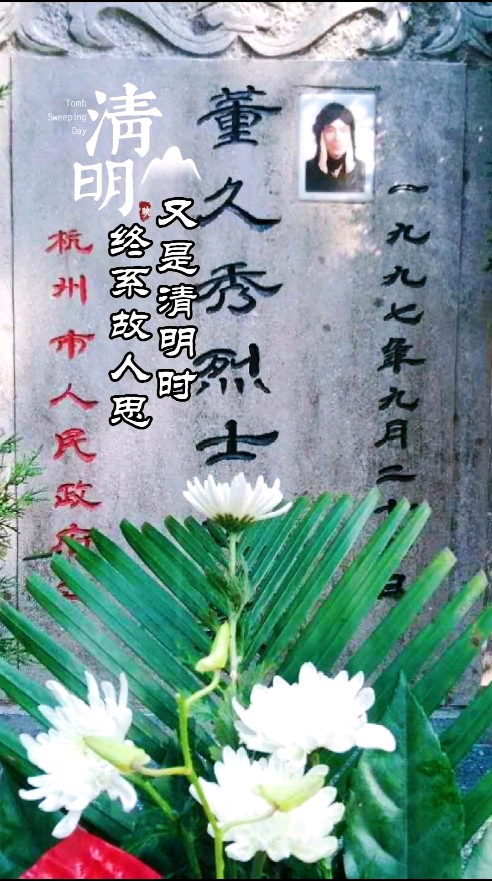 董久秀烈士
一九九七年九月二十
日
杭州市人民政府
清明
Tomb
Sweeping
Day
又是清明时
终系故人思